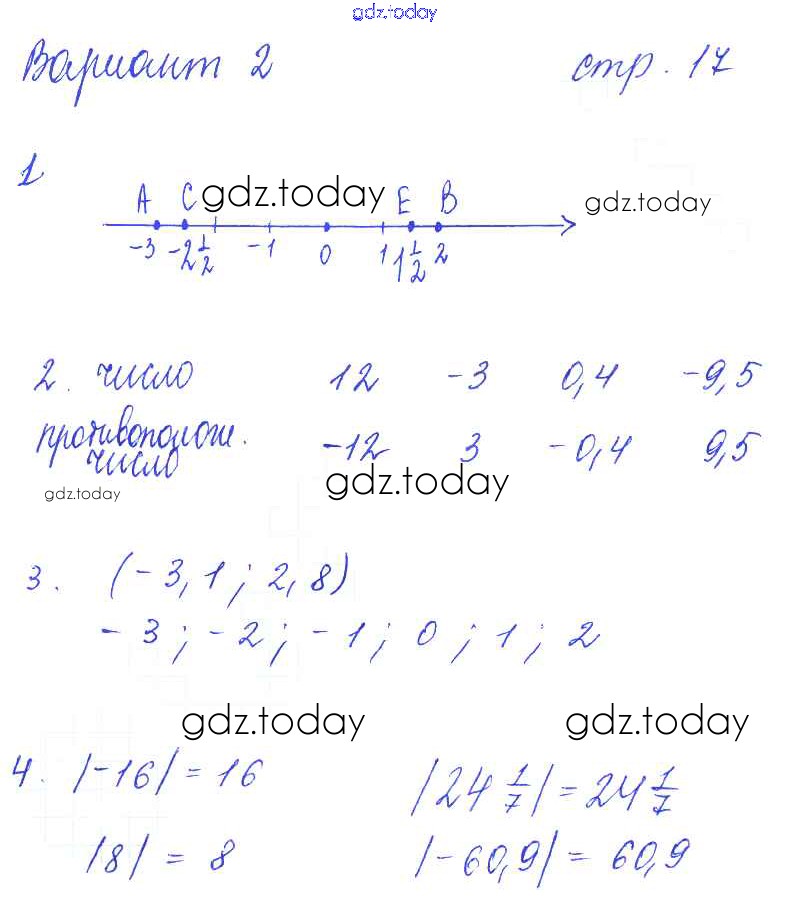 gdz.today
Вариант 2 стр. 17
1
A C gdz.today E B gdz.today
-3 -2 1/2 -1 0 1 1 1/2 2
2. число 12 -3 0,4 -9,5
противополож.
число -12 3 -0,4 9,5
gdz.today gdz.today
3. (-3,1; 2,8)
-3; -2; -1; 0; 1; 2
gdz.today gdz.today
4. |-16| = 16 |24 1/7| = 24 1/7
|8| = 8 |-60,9| = 60,9